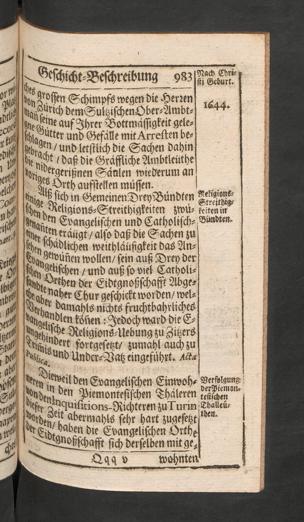 Geschicht-Beschreibung 983
Nach Chri-
sti Geburt.
1644.
ches grossen Schimpfs wegen die Herren
von Zürich dem Sultzischen Ober-Ambt-
man seine auf Ihrer Bottmässigkeit gele-
gne Gütter und Gefälle mit Arresten be-
schlagen / und letstlich die Sachen dahin
gebracht / daß die Gräffliche Ambtleüthe
die nidergerißnen Säulen wiederum an
voriges Orth aufstellen müssen.
Alß sich in Gemeinen Drey Bündten
einige Religions-Streithigkeiten zwü-
schen den Evangelischen und Catholisch-
genanten eräugt / also daß die Sachen zu
einer schädlichen weithläufigkeit das An-
sehen gewoünen wollen / sein auß Drey der
Evangelischen / und auß so viel Catholi-
schen Orthen der Eidtgnoßschafft Abge-
sandte naher Chur geschickt worden / wel-
che aber damahls nichts fruchtbahrliches
Verhandlen können : Jedoch ward die E-
vangelische Religions-Uebung zu Zitzers
fortgesetzt / zumahl auch zu
Trimis und Under-Vatz eingeführt. Acta
Publica.
Religions-
Streithig-
keiten in
Bündten.
Dieweil den Evangelischen Einwoh-
neren in den Piemontesischen Thäleren
von den Inquisitions-Richteren zu Turin
dieser Zeit abermahls sehr hart zugesetzt
worden / haben die Evangelischen Orthe
der Eidtgnoßschafft sich derselben mit ge-
Verfolgung
der Piemon-
tesischen
Thalleü-
then.
Qqq v wohnten